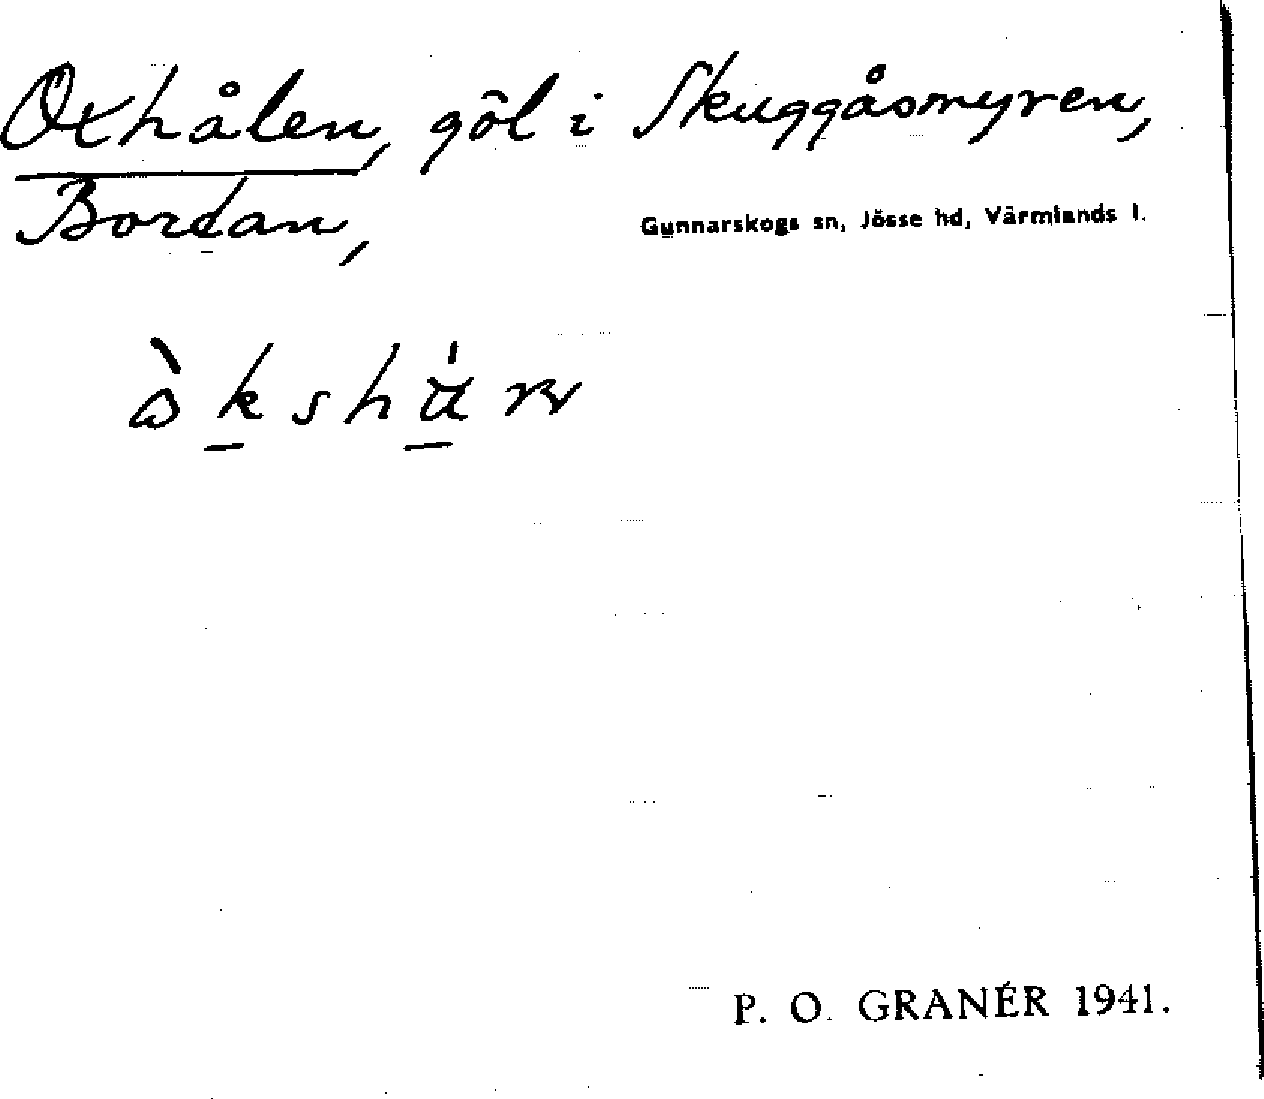 Oxhålen, göl i Skuggåsmyren,
Bordan,
Gunnarskogs sn, Jösse hd, Värmlands l.
P. O. GRANÉR 1941.